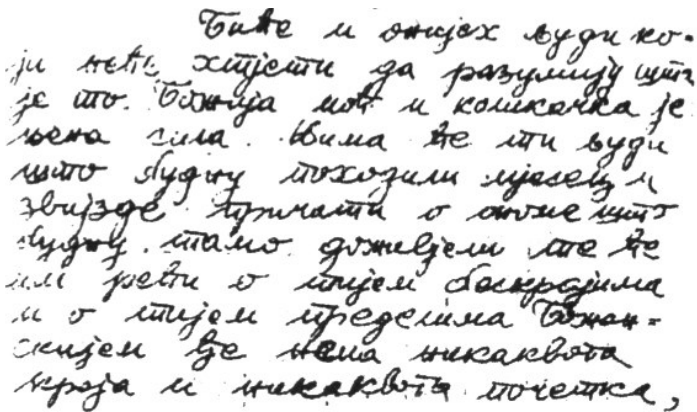 Биће и онијех људи ко-
ји неће хтјети да разумију шта
је то Божија моћ и колкачка је
њена сила. Њима ће ти људи
што будну походили мјесец и
звијезде причати о ономе што
будну тамо доживјели те ће
им рећи о тијем бескрајима
и о тијем пределима Божан-
скијем ђе нема никаквога
краја и никаквога почетка,